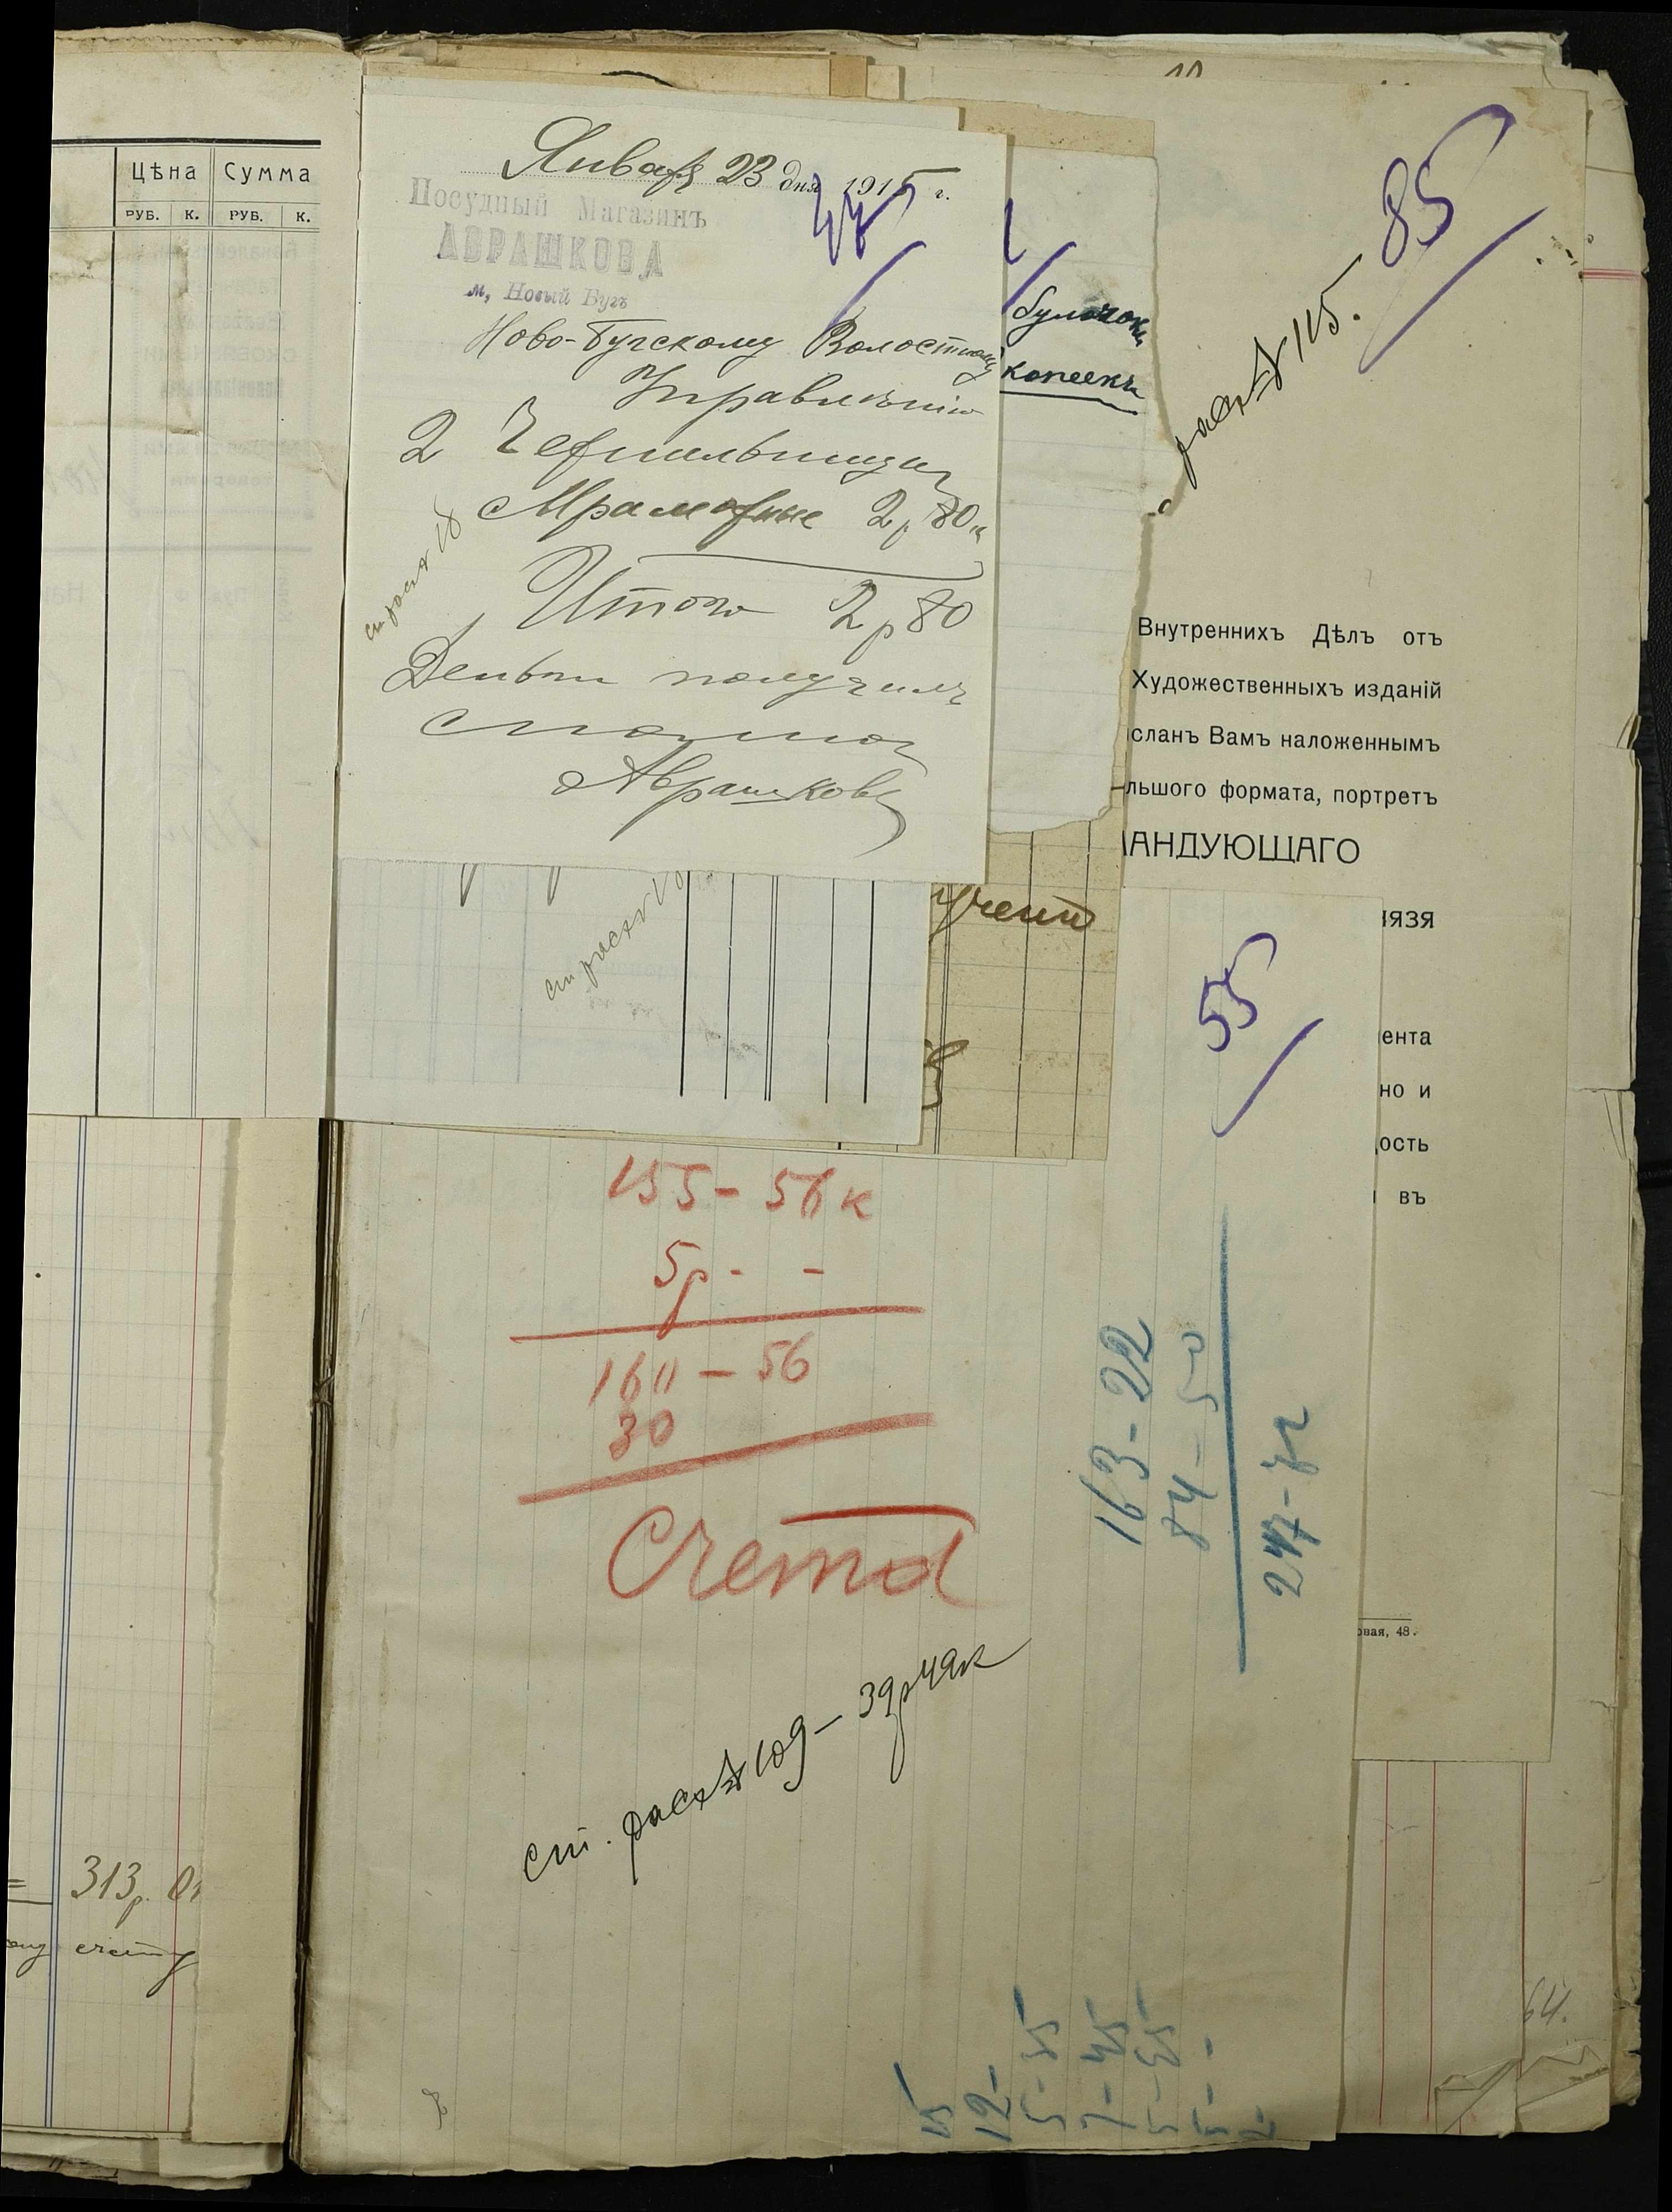 Цѣна Сумма
РУБ. К. РУБ. К.
313р.
счету
Января 23 дня 1915 г.
Посудный Магазинъ
АВРАШКОВА
м, Новый Бугъ
Ново-Бугскому Волостному
Управлению
2 Чернильницы
Мраморные 2р 80к
Итого 2р 80
Деньги получилъ
Аврашковъ
ст расх 18
булочокъ
копеекъ
85
расх № 115.
Внутреннихъ Дѣлъ отъ
Художественныхъ изданій
сланъ Вамъ наложеннымъ
льшого формата, портретъ
АНДУЮЩАГО
нязя
ента
но и
ость
въ
овая, 48.
55
ст расх №
155 - 56 к
5р - -
160 - 56
30
Счета
ст. расх № 109 – 39р 49к
163 - 22
84 - 50
247 - 72
12 -
64.